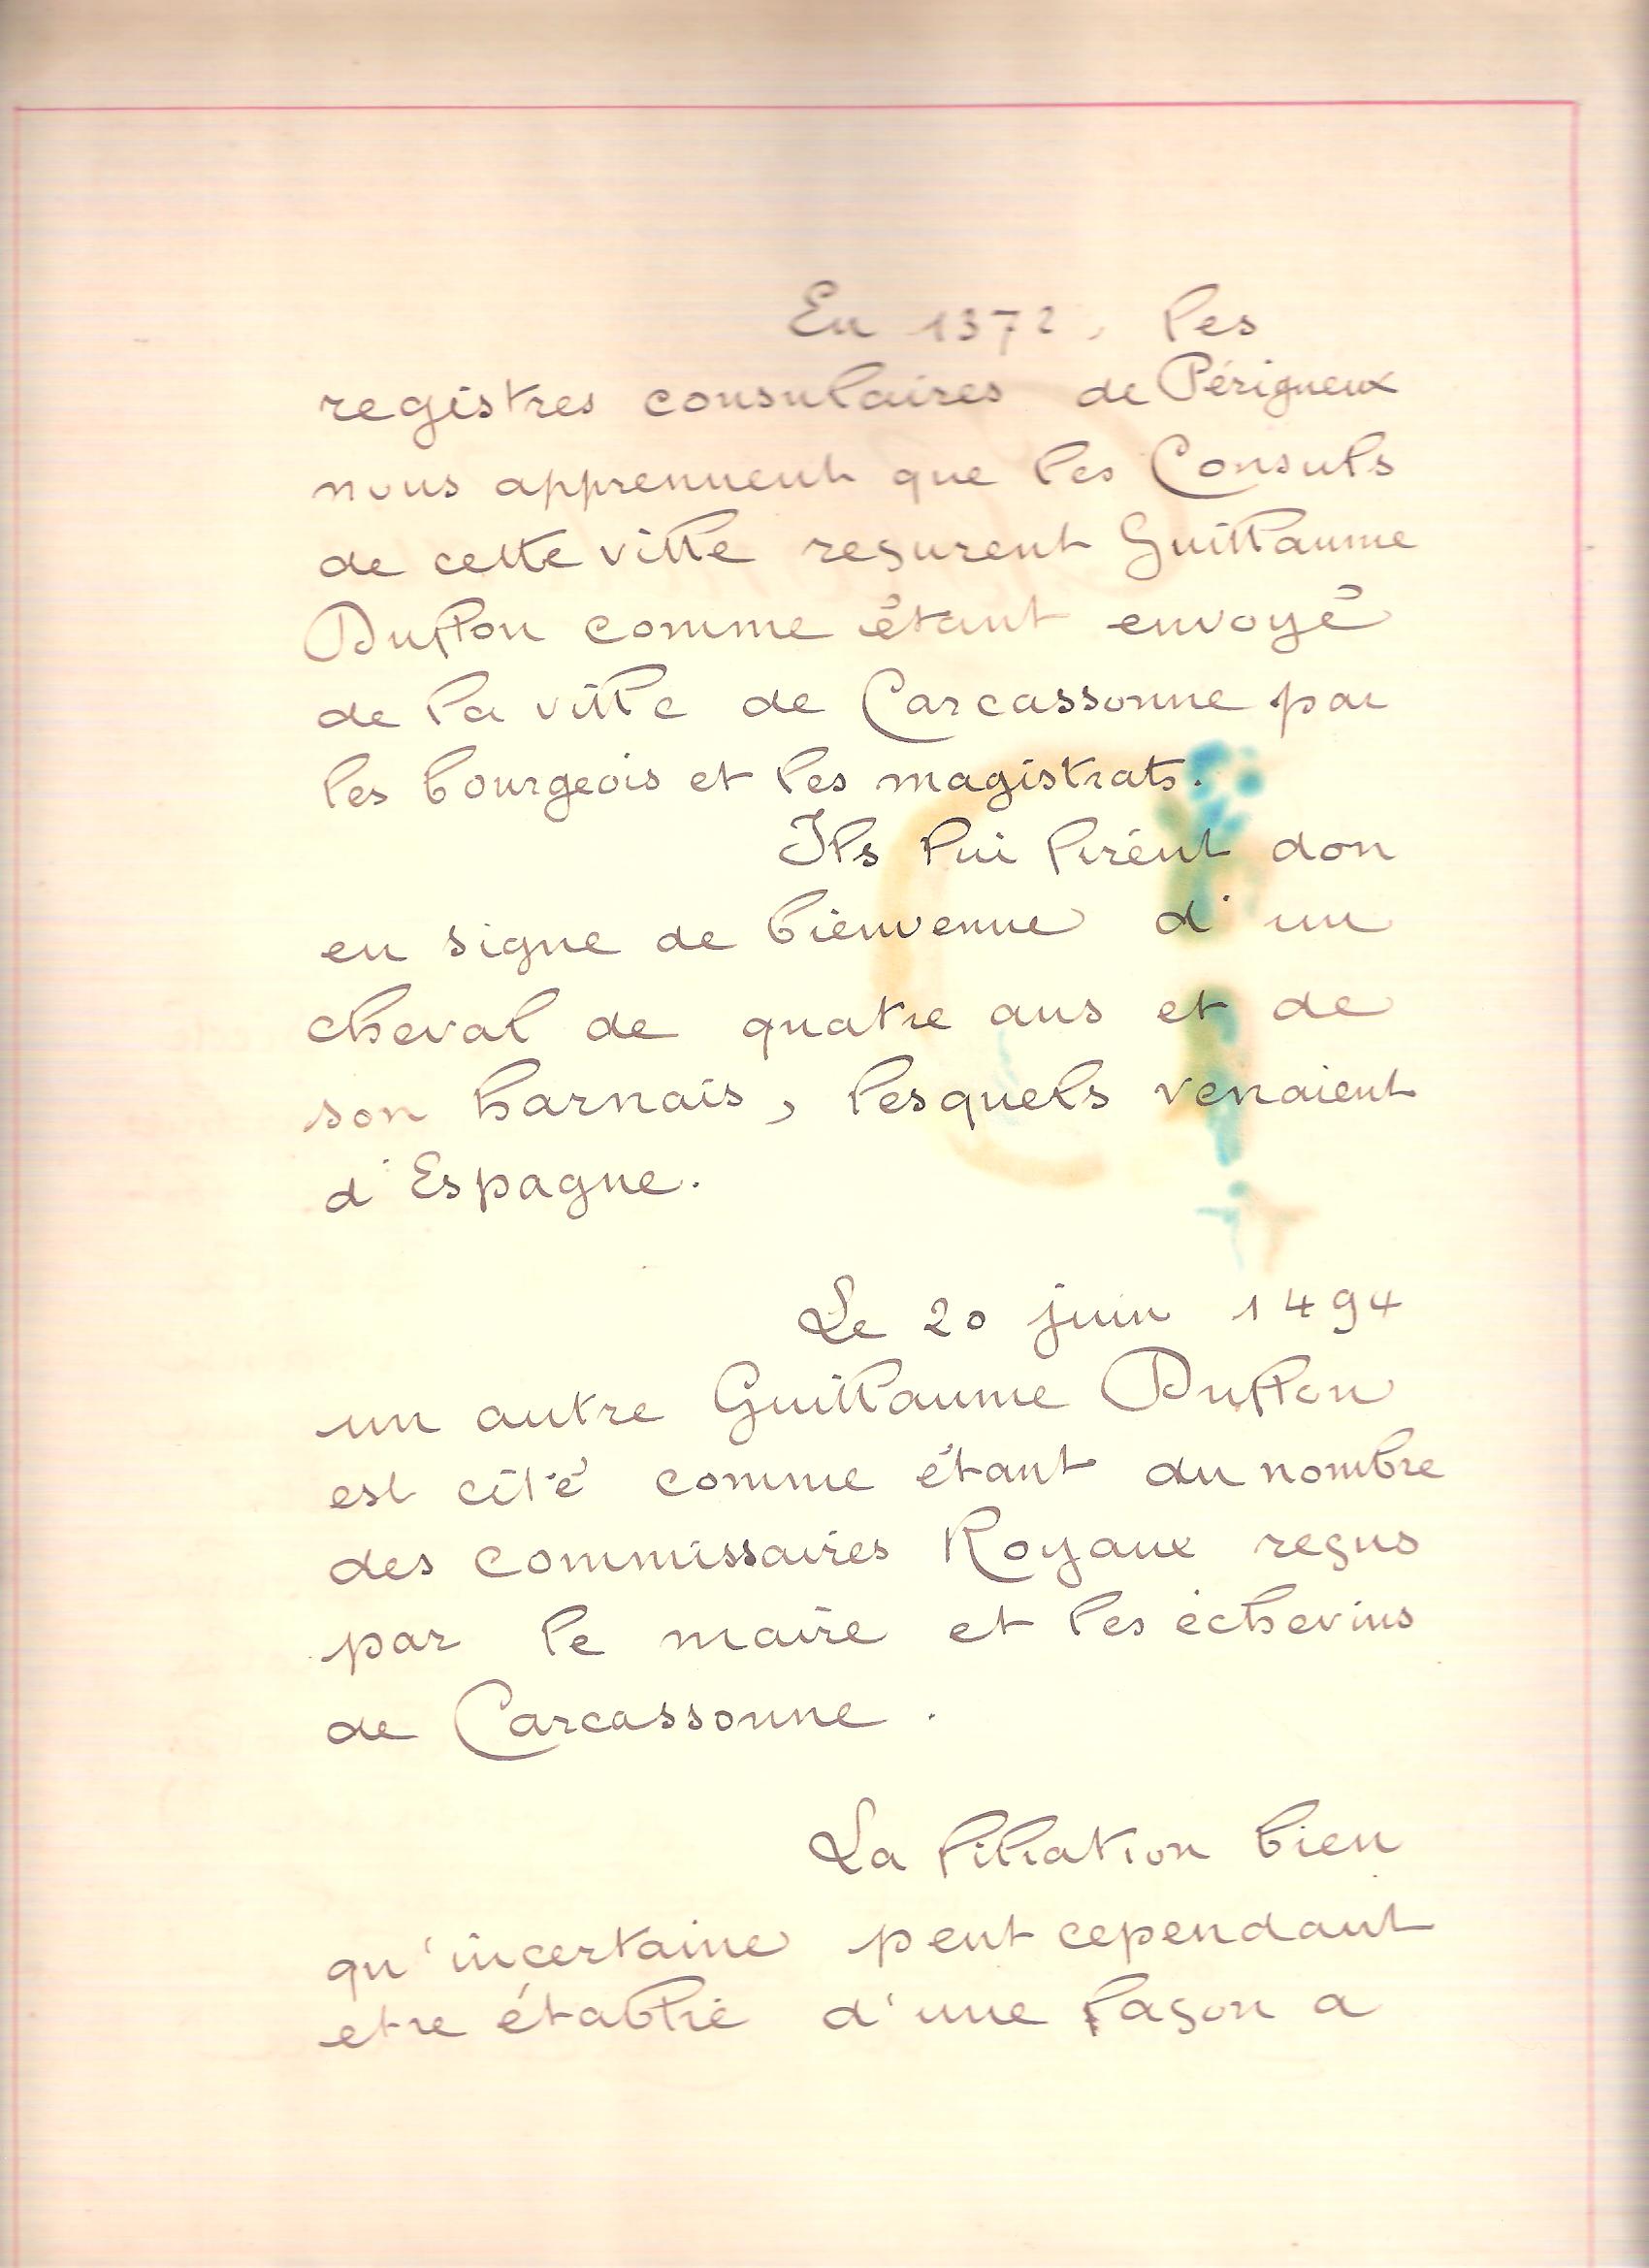 En 1372, les
registres consulaires de Périgueux
nous apprennent que les Consuls
de cette ville reçurent Guillaume
Dufton comme étant envoyé
de la ville de Carcassonne par
les bourgeois et les magistrats.
Ils lui firent don
en signe de bienvenue d'un
cheval de quatre ans et de
son harnais, lesquels venaient
d'Espagne.
Le 20 juin 1494
un autre Guillaume Dufton
est cité comme étant du nombre
des commissaires Royaux reçus
par le maire et les échevins
de Carcassonne.
La filiation bien
qu'incertaine peut cependant
etre établie d'une façon a